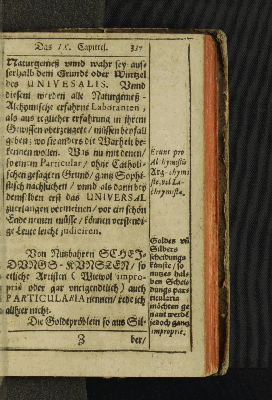 Das IX. Capittel. 337
Naturgemeß vnnd wahr sey aus-
serhalb dem Grunde oder Wurtzel
des UNIVESALIS. Vnnd
diesem werden alle Naturgemeß-
Alchymische erfahrne Laboranten,
als aus teglicher erfahrung in ihrem
Gewissen vberzeuget/ müssen beyfall
geben; wo sie anders die Warheit be-
kennen wollen. Was nu mit denen/
so einem Particular/ ohne Catholi-
schen gesagten Grund/ gantz Sophi-
stisch nachsuchen/ vnnd als dann bey
demselben erst das UNIVERSAL
zuerlangen vermeinen/ vor ein schön
Ende nemen müsse/ können verstendi-
ge Leute leicht judiciren.
Erunt pro
Alchymistis
Arg-chymi
stæ, vel La-
chrymistæ.
Von Nutzbaren SCHEI-
DVNGS-KVNSTEN/ so
etliche Artisten (Wiewol impro-
priè oder gar vneigendtlich) auch
PARTICULARIA nennen/ rede ich
allhier nicht.
Goldes vñ
Silbers
scheidungs
künste/ so
nutzes hal-
ben Schei-
dungs par-
ticularia
möchten ge
nant werdẽ
jedoch gantz
impropriè.
Die Goldtpröblein so aus Sil-
Z ber/